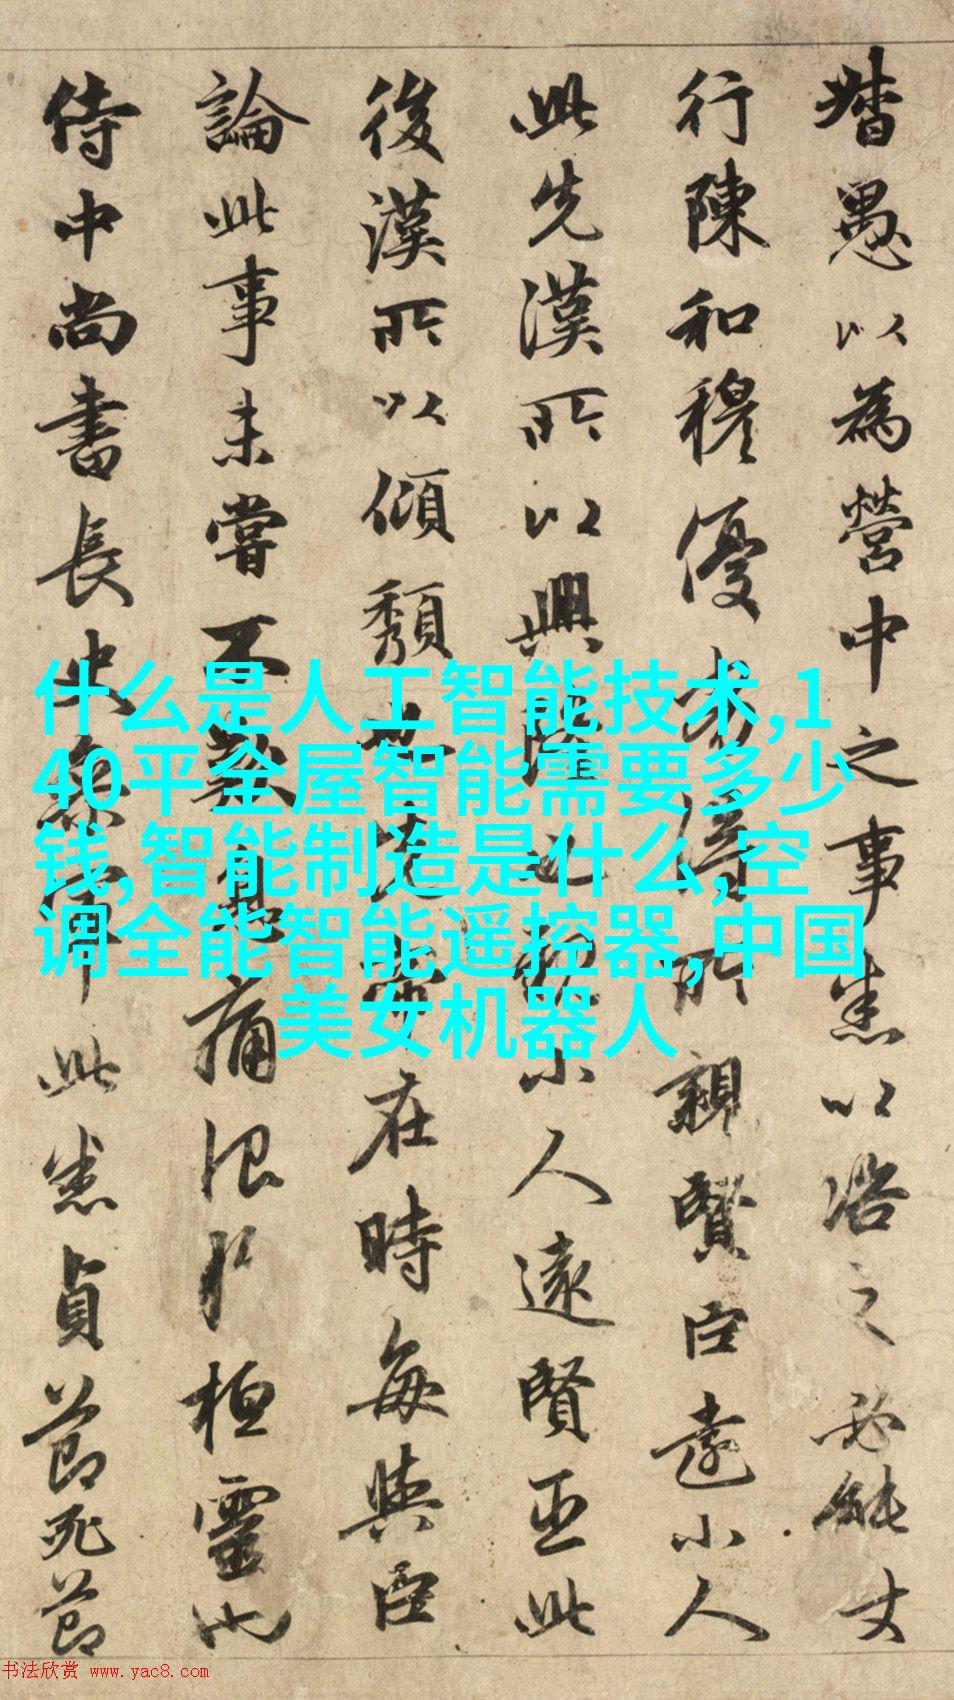 督愚以為營中之事悉以咨之必能使
行陳和穆優劣得所親賢臣遠小人
此先漢所以興隆也親小人遠賢臣此
後漢所以傾頹也先帝在時每與臣
論此事未嘗不歎息痛恨於桓靈也
侍中尚書長史參軍此悉貞節死節
什么是人工智能技术,1
40平全屋智能需要多少
钱,智能制造是什么,空
调全能智能遥控器,中国
美女机器人
书法欣赏 www.yac8.com